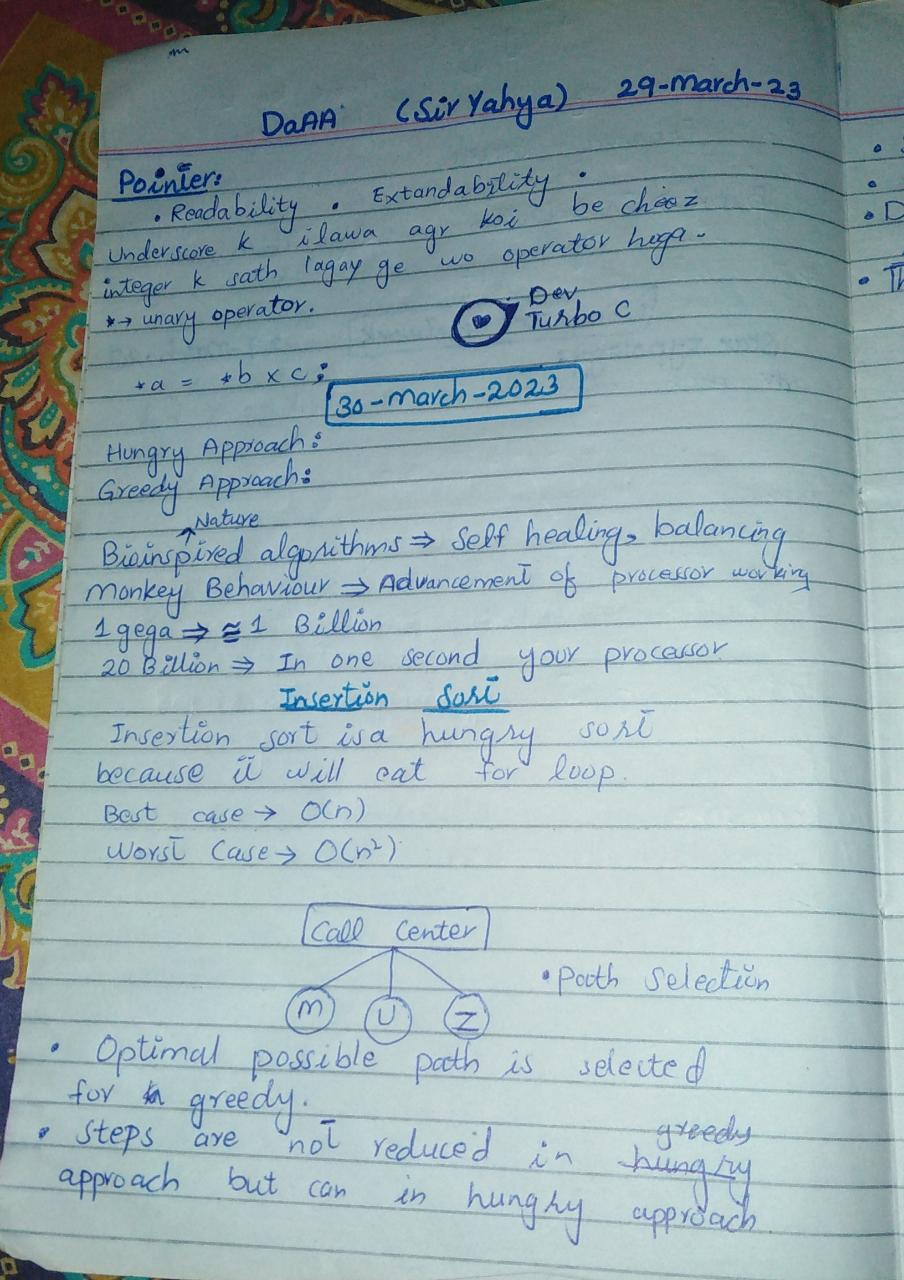 DaAA (Sir Yahya) 29-March-23
Pointer:
• Readability • Extandability •
Underscore k ilawa agr koi be cheez
integer k sath lagay ge wo operator hoga.
*→ unary operator.
Dev
Turbo C
*a = *b x c;
30-March-2023
Hungry Approach:
Greedy Approach:
Nature
Bioinspired algorithms ⇒ Self healing, balancing
Monkey Behaviour ⇒ Advancement of processor working
1 gega ⇒ ≅ 1 Billion
20 Billion ⇒ In one second your processor
Insertion Sort
Insertion sort is a hungry sort
because it will eat for loop.
Best case → O(n)
Worst Case → O(n²)
Call Center
• Path Selection
M U Z
• Optimal possible path is selected
for greedy.
greedy
• Steps are not reduced in hungry
approach but can in hungry approach
•
•
• D
• Th